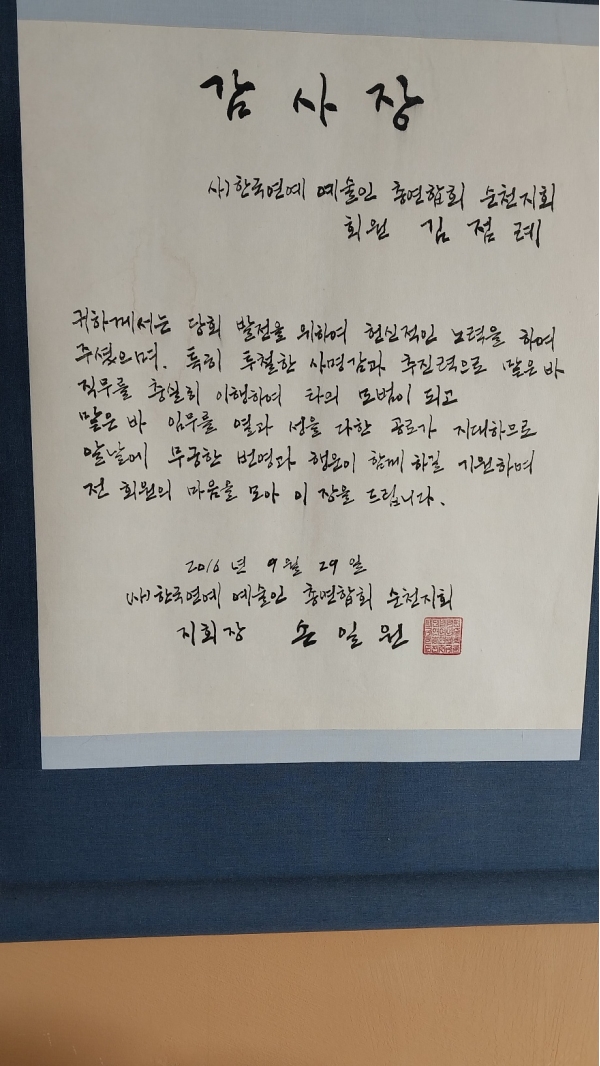 감사장
사)한국연예 예술인 총연합회 순천지회
회원 김점례
귀하께서는 당회 발전을 위하여 헌신적인 노력을 하여
주셨으며. 특히 투철한 사명감과 추진력으로 맡은 바
직무를 충실히 이행하여 타의 모범이 되고
맡은 바 임무를 열과 성을 다한 공로가 지대하므로
앞날에 무궁한 번영과 행운이 함께 하길 기원하며
전 회원의 마음을 모아 이 장을 드립니다.
2016년 9월 29일
(사)한국연예 예술인 총연합회 순천지회
지회장 손일원